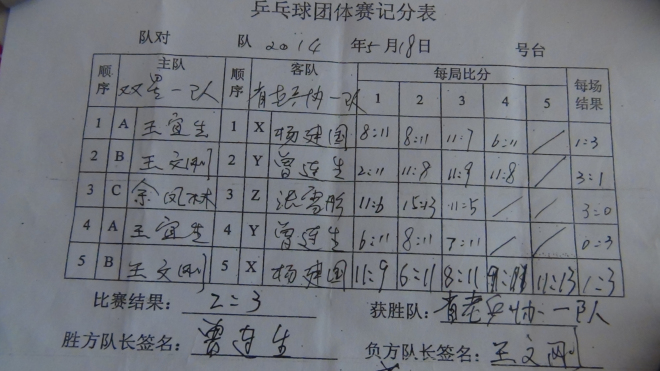 乒乓球团体赛记分表
队对 队 2014年5月18日 号台
顺序 主队 双星一队 顺序 客队 省老乒协一队 每局比分 1 2 3 4 5 每场结果
1 A 王宜生 1 X 杨建国 8:11 8:11 11:7 6:11 / 1:3
2 B 王文刚 2 Y 曾连生 2:11 11:8 11:9 11:8 / 3:1
3 C 余凤林 3 Z 11:6 15:13 11:5 / / 3:0
4 A 王宜生 4 Y 曾连生 6:11 8:11 7:11 / / 0:3
5 B 王文刚 5 X 杨建国 11:9 6:11 8:11 11:13 1:3
比赛结果: 2:3 获胜队: 省老乒协一队
胜方队长签名: 曾连生 负方队长签名: 王文刚